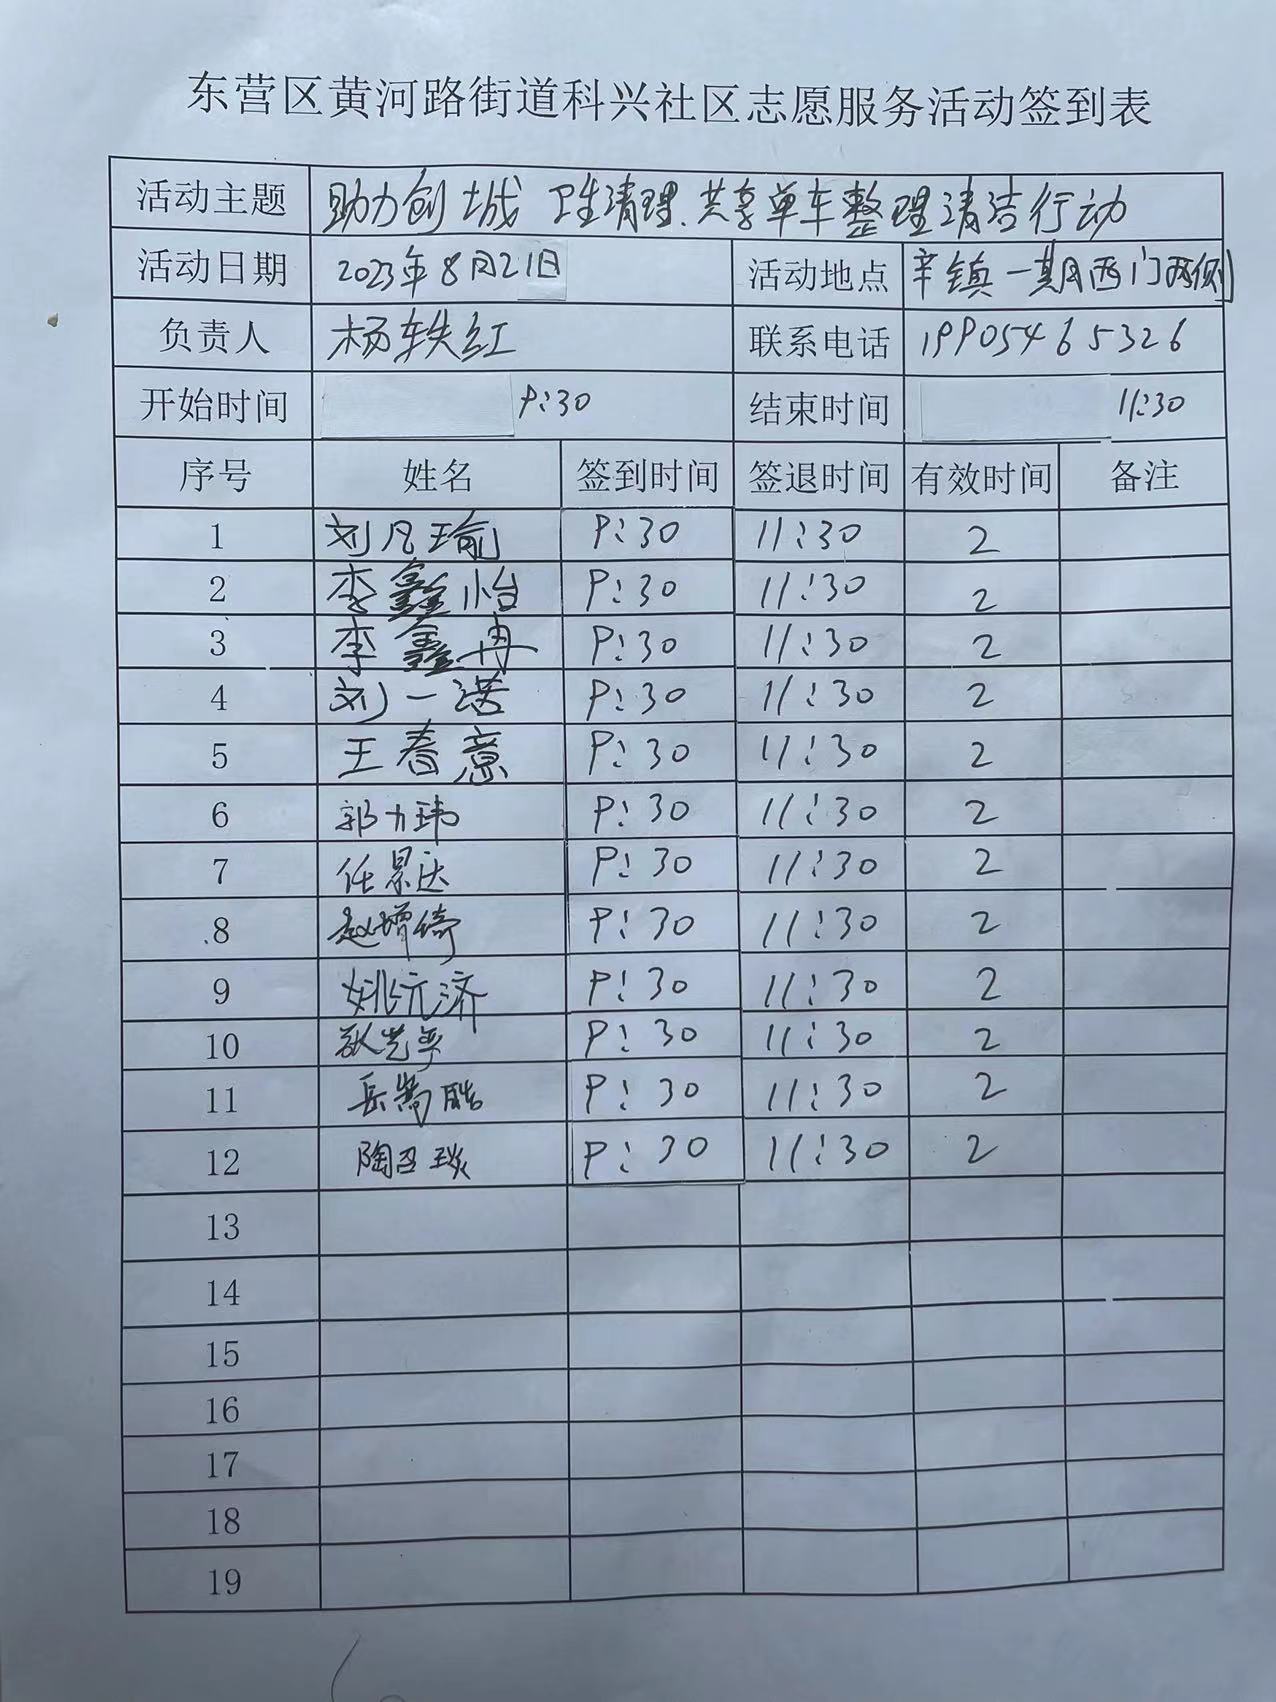 东营区黄河路街道科兴社区志愿服务活动签到表
活动主题 助力创城 卫生清理、共享单车整理清洁行动
活动日期 2023年8月21日 活动地点 辛镇一期西门两侧
负责人 杨轶红 联系电话 19905465326
开始时间 9:30 结束时间 11:30
序号 姓名 签到时间 签退时间 有效时间 备注
1 刘凡瑜 9:30 11:30 2
2 李鑫怡 9:30 11:30 2
3 李鑫冉 9:30 11:30 2
4 刘一诺 9:30 11:30 2
5 王春意 9:30 11:30 2
6 郭力玮 9:30 11:30 2
7 任景达 9:30 11:30 2
8 赵增绮 9:30 11:30 2
9 姚元济 9:30 11:30 2
10 9:30 11:30 2
11 岳嵩皓 9:30 11:30 2
12 陶 琰 9:30 11:30 2
13
14
15
16
17
18
19